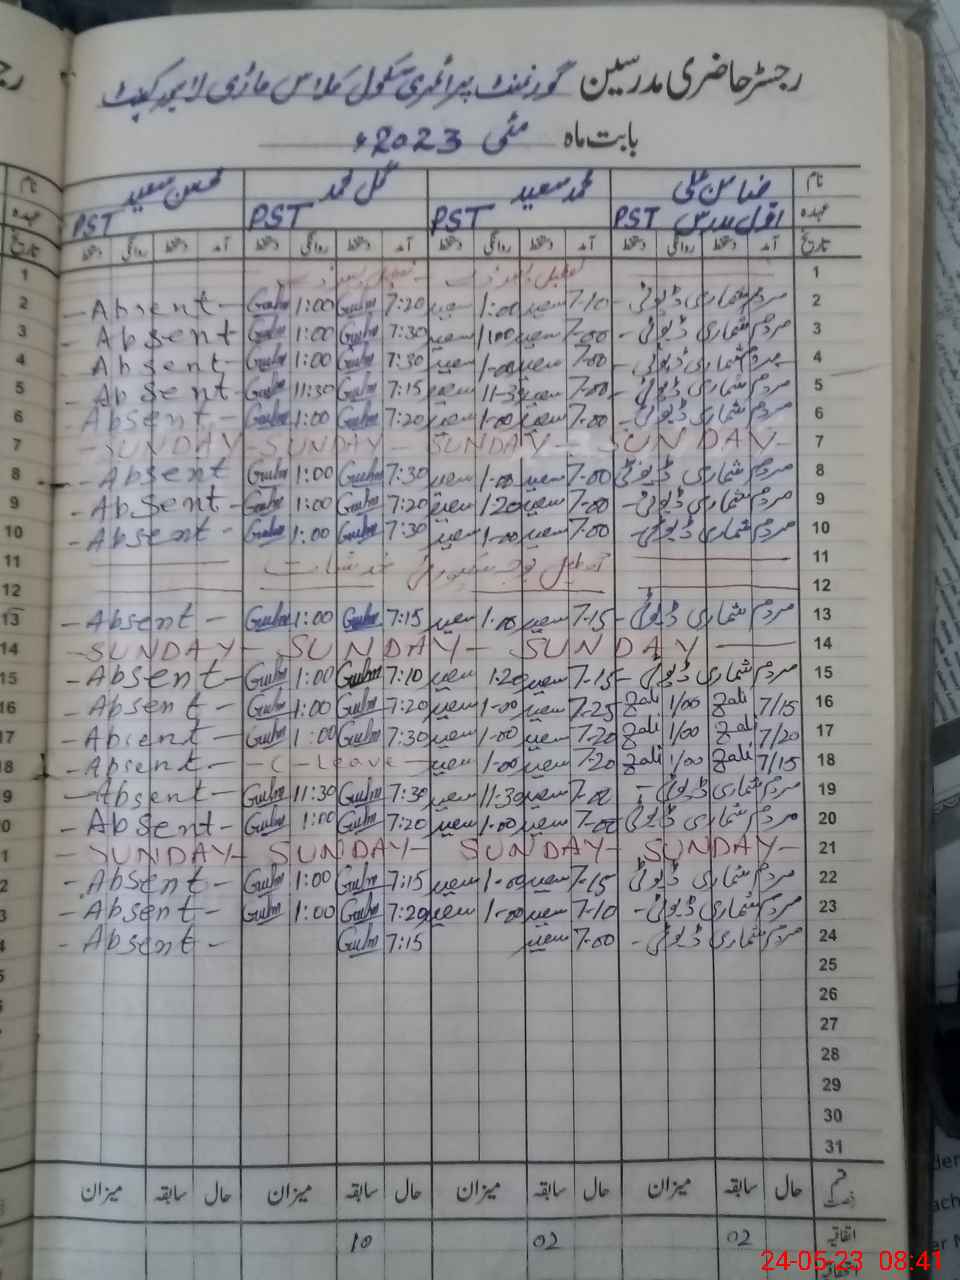 رجسٹر حاضری مدرسین گورنمنٹ پرائمری سکول
بابت ماہ مئی 2023ء
نام ضامن علی محمد سعید گل محمد محسن سعید
عہدہ اول مدرس PST PST PST PST
تاریخ آمد دستخط روانگی دستخط آمد دستخط روانگی دستخط آمد دستخط روانگی دستخط آمد دستخط روانگی دستخط
1
2 مردم شماری ڈیوٹی - 7-10 سعید 1:00 سعید 7:20 Gulm 1:00 Gulm - Absent -
3 مردم شماری ڈیوٹی - 7-00 سعید 1:00 سعید 7:30 Gulm 1:00 Gulm - Absent
4 مردم شماری ڈیوٹی - 7-00 سعید 1-00 سعید 7:30 Gulm 1:00 Gulm - Absent -
5 مردم شماری ڈیوٹی - 7-00 سعید 11-30 سعید 7:15 Gulm 11:30 Gulm - Absent -
6 مردم شماری ڈیوٹی - 7-00 سعید 1-00 سعید 7:20 Gulm 1:00 Gulm Absent -
7 - SUNDAY - SUNDAY - SUNDAY - SUNDAY -
8 مردم شماری ڈیوٹی 7-00 سعید 1-00 سعید 7:30 Gulm 1:00 Gulm - Absent
9 مردم شماری ڈیوٹی - 7-00 سعید 1-20 سعید 7:20 Gulm 1:00 Gulm - Absent -
10 مردم شماری ڈیوٹی - 7-00 سعید 1-00 سعید 7:30 Gulm 1:00 Gulm - Absent -
11
12
13 مردم شماری ڈیوٹی - 7-15 سعید 1-00 سعید 7:15 Gulm 1:00 Gulm - Absent -
14 - SUNDAY - SUNDAY - SUNDAY -
15 مردم شماری ڈیوٹی - 7-15 سعید 1:20 سعید 7:10 Gulm 1:00 Gulm - Absent -
16 7/15 Zali 1/00 Zali 7-25 سعید 1-00 سعید 7:20 Gulm 1:00 Gulm - Absent -
17 7/20 Zali 1/00 Zali 7-20 سعید 1-00 سعید 7:30 Gulm 1:00 Gulm - Absent -
18 7/15 Zali 1/00 Zali 7-20 سعید 1-00 سعید - C - Leave - - Absent -
19 مردم شماری ڈیوٹی - 7-00 سعید 11-30 سعید 7:30 Gulm 11:30 Gulm - Absent -
20 مردم شماری ڈیوٹی 7-00 سعید 1-00 سعید 7:20 Gulm 1:00 Gulm - Absent -
21 - SUNDAY - SUNDAY - SUNDAY - SUNDAY -
22 مردم شماری ڈیوٹی 7-15 سعید 1-00 سعید 7:15 Gulm 1:00 Gulm - Absent -
23 مردم شماری ڈیوٹی - 7-10 سعید 1-00 سعید 7:20 Gulm 1:00 Gulm - Absent -
24 مردم شماری ڈیوٹی - 7-00 سعید 7:15 Gulm - Absent -
25
26
27
28
29
30
31
حال سابقہ میزان حال سابقہ میزان حال سابقہ میزان حال سابقہ میزان
اتفاقیہ 02 02 10
24-05-23 08:41